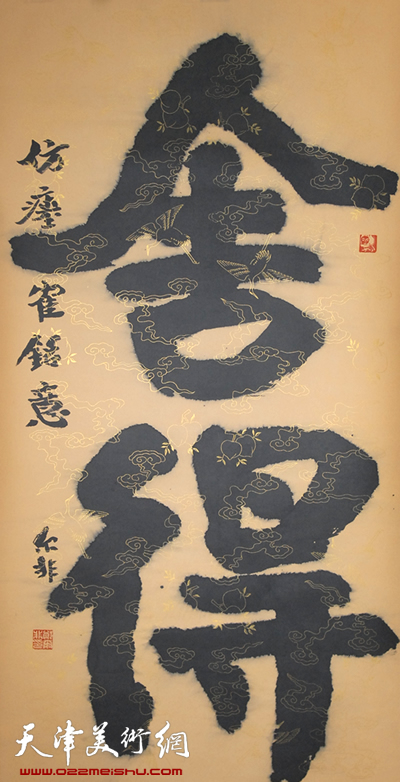 舍得
仿瘞隺銘意
尔非
天津美術網
www.022meishu.com